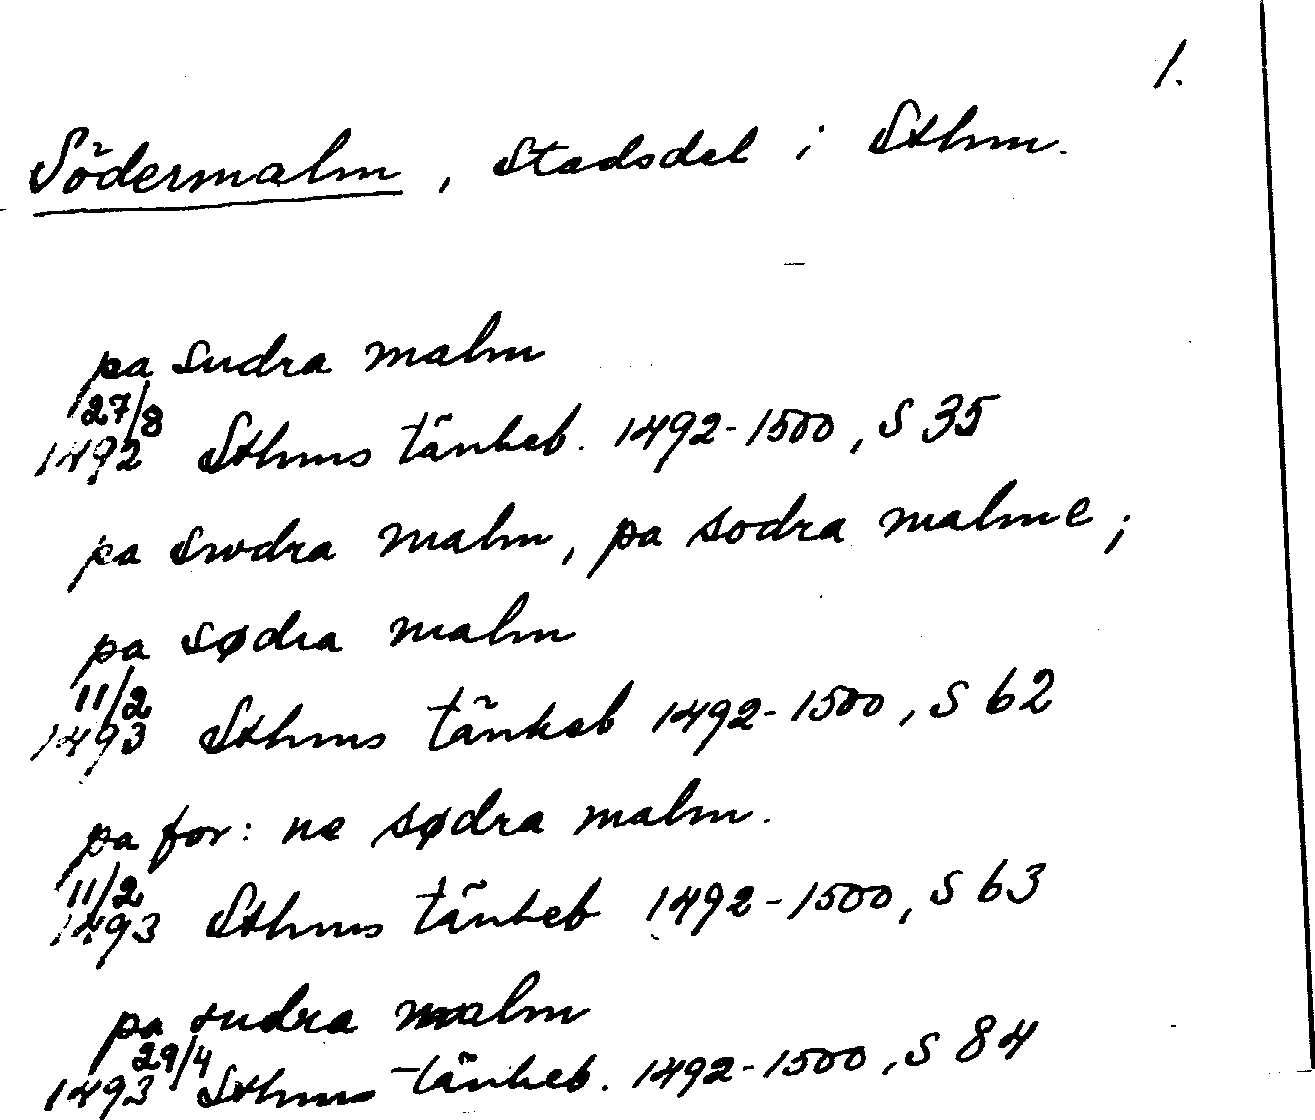 1.
Södermalm, Stadsdel i Sthm.
pa sudra malm
27/8
1492 Sthms tänkeb. 1492-1500, S 35
pa swdra malm, pa sodra malme;
pa sødra malm
11/2
1493 Sthms tänkeb 1492-1500, S 62
pa for: ne sødra malm.
11/2
1493 Sthms tänkeb 1492-1500, S 63
pa sudra malm
29/4
1493 Sthms tänkeb. 1492-1500, S 84